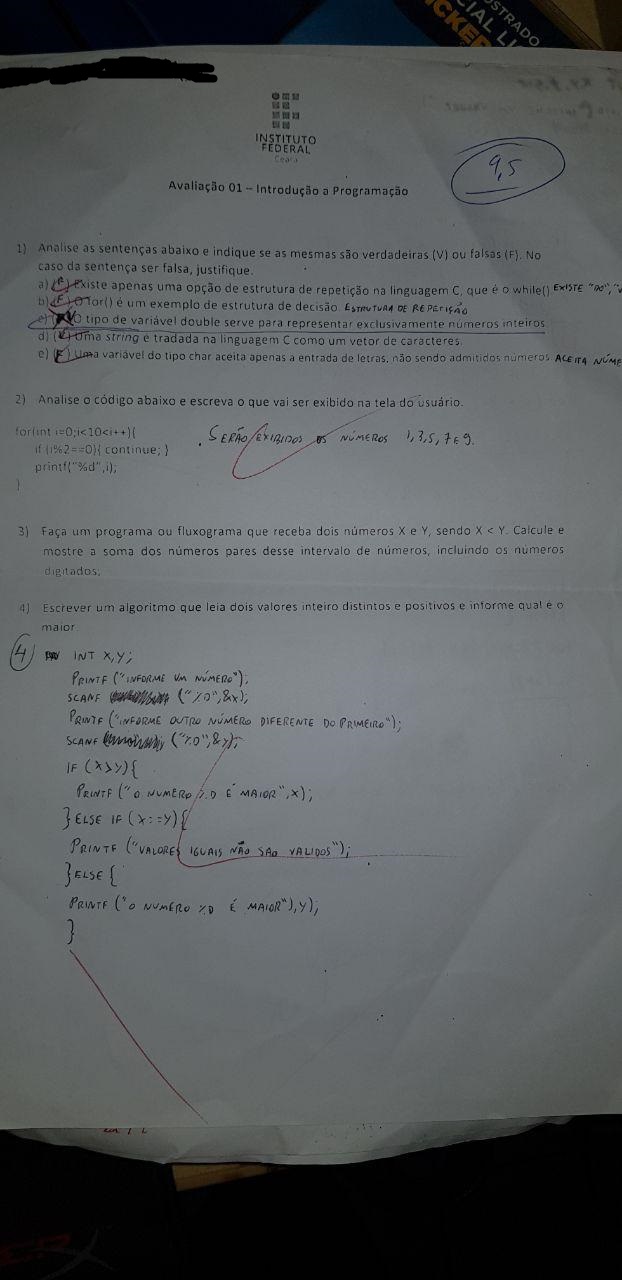 OSTRADO
CIAL LI
CKER
INSTITUTO
FEDERAL
Ceará
9,5
Avaliação 01 – Introdução a Programação
1) Analise as sentenças abaixo e indique se as mesmas são verdadeiras (V) ou falsas (F). No
caso da sentença ser falsa, justifique.
a) (F) Existe apenas uma opção de estrutura de repetição na linguagem C, que é o while() EXISTE "DO",
b) (F) O for() é um exemplo de estrutura de decisão. ESTRUTURA DE REPETIÇÃO
c) O tipo de variável double serve para representar exclusivamente números inteiros
d) Uma string é tradada na linguagem C como um vetor de caracteres.
e) (F) Uma variável do tipo char aceita apenas a entrada de letras, não sendo admitidos números. ACEITA NÚME
2) Analise o código abaixo e escreva o que vai ser exibido na tela do usuário.
for(int i=0;i<10<i++){
if (i%2==0){ continue; }
printf("%d",i);
}
. SERÃO EXIBIDOS OS NÚMEROS 1,3,5,7 E 9.
3) Faça um programa ou fluxograma que receba dois números X e Y, sendo X < Y. Calcule e
mostre a soma dos números pares desse intervalo de números, incluindo os números
digitados;
4) Escrever um algoritmo que leia dois valores inteiro distintos e positivos e informe qual é o
maior.
4 INT X,Y;
PRINTF ("INFORME UM NÚMERO");
SCANF ("%D",&X);
PRINTF ("INFORME OUTRO NÚMERO DIFERENTE DO PRIMEIRO");
SCANF ("%D",&Y);
IF (X>Y){
PRINTF ("O NUMERO %D É MAIOR",X);
} ELSE IF (X==Y){
PRINTF ("VALORES IGUAIS NÃO SAO VALIDOS");
} ELSE {
PRINTF ("O NUMERO %D É MAIOR"),Y);
}